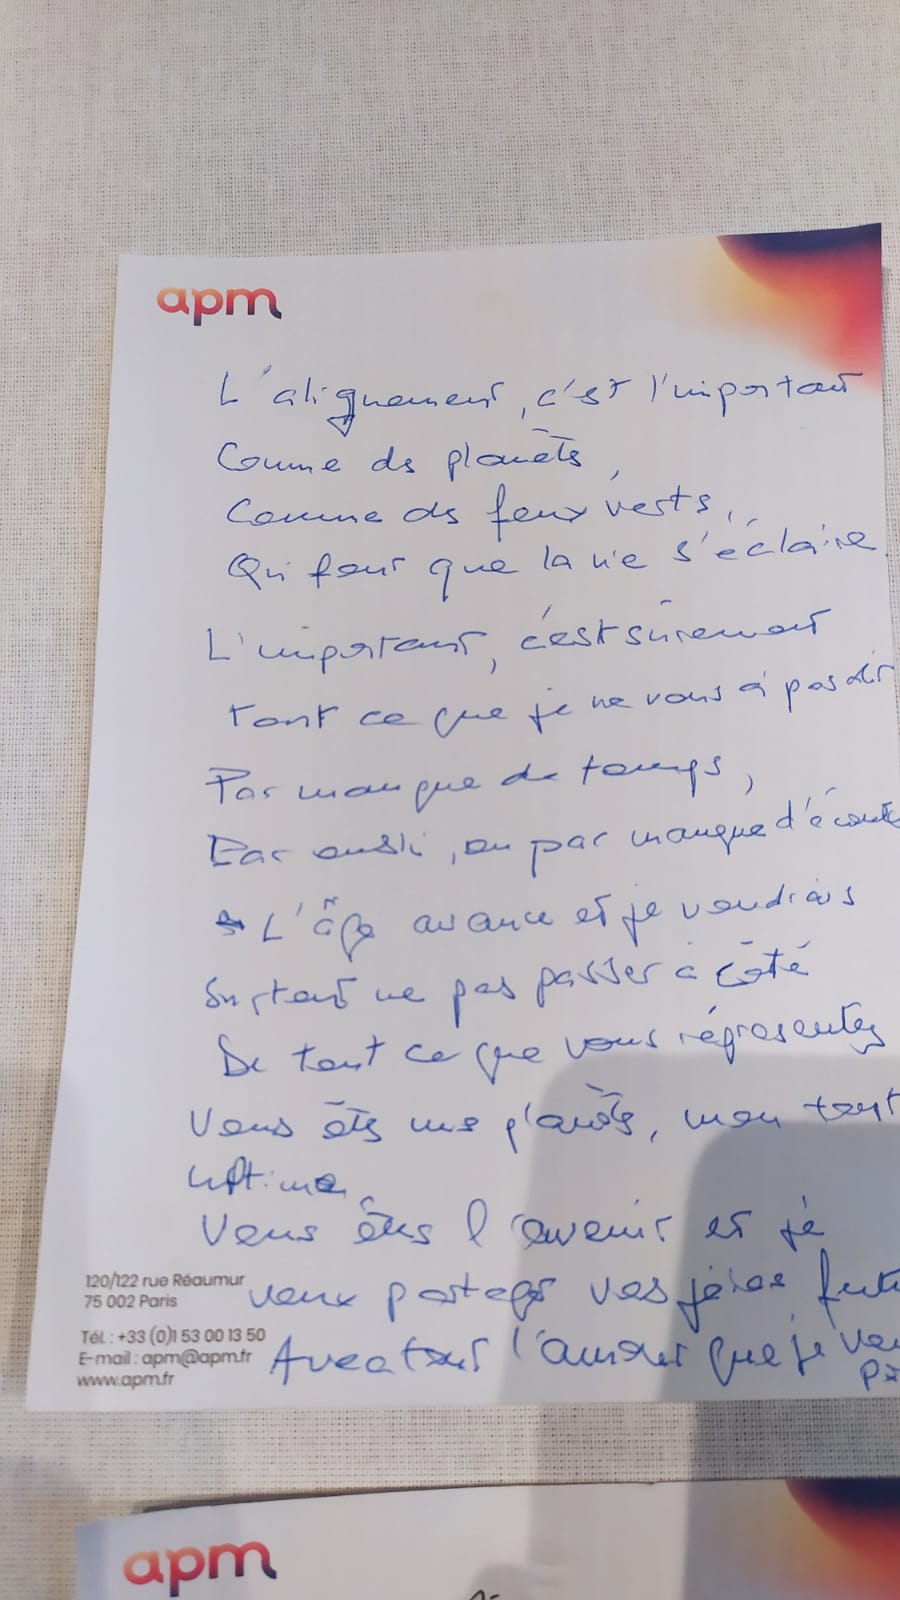 apm
L'alignement, c'est l'important
Comme des planètes,
Comme des feux verts,
Qui font que la vie s'éclaire.
L'important, c'est sûrement
tout ce que je ne vous ai pas dit
Par manque de temps,
Par oubli, ou par manque d'écoute
L'âge avance et je voudrais
Surtout ne pas passer à côté
De tout ce que vous représentez
Vous êtes ma planète, mon tout
ultime
Vous êtes l'avenir et je
veux partager vos joies
Avec tout l'amour que je
120/122 rue Réaumur
75 002 Paris
Tél. : +33 (0)1 53 00 13 50
E-mail : apm@apm.fr
www.apm.fr
apm